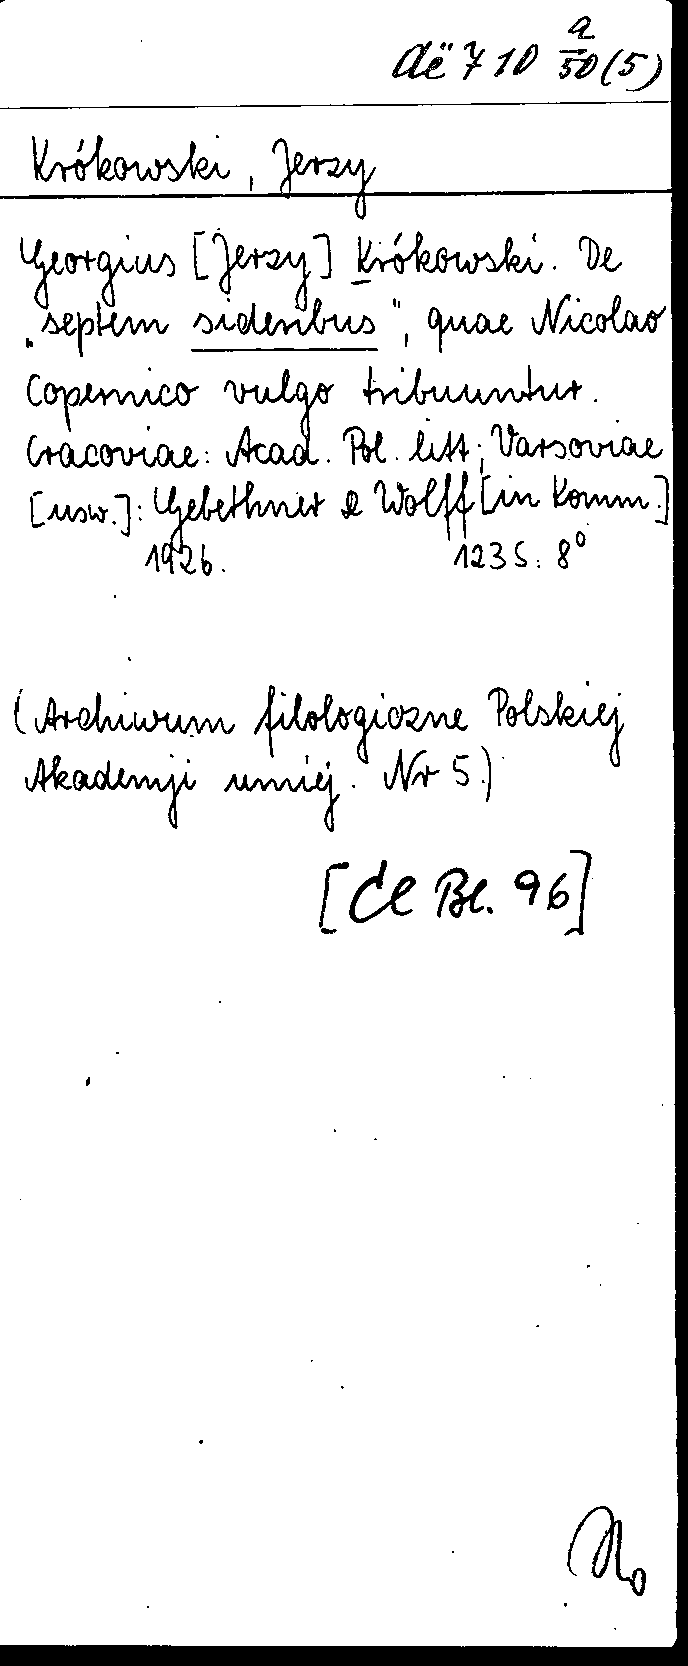 aë 710 a/50 (5)
Krókowski, Jerzy
Georgius [Jerzy] Krókowski. De
„septem sideribus“, quae Nicolao
Copernico vulgo tribuuntur.
Cracoviae: Acad. Pol. litt.; Varsoviae
[usw.]: Gebethner & Wolff [in Komm.]
1926. 123 S. 8°
(Archiwum filologiczne Polskiej
Akademji umiej. Nr 5.)
[cl Bl. 96]